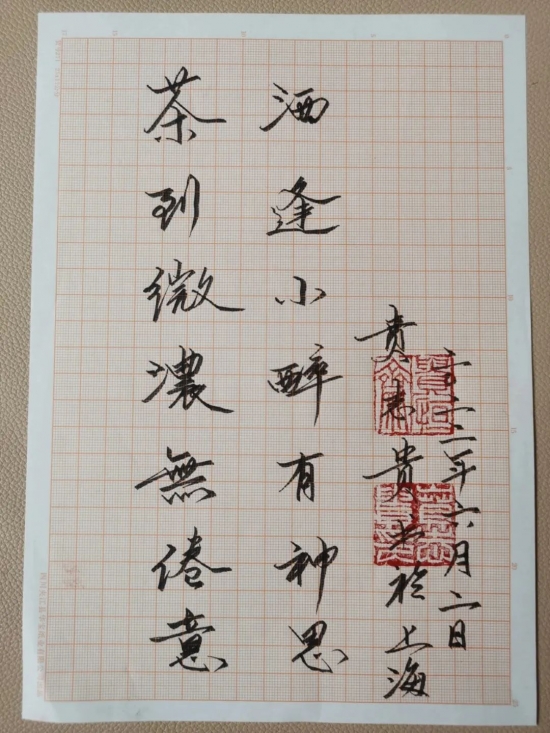 二〇二二年六月二日
贵志贵书於上海
酒逢小醉有神思
茶到微濃無倦意